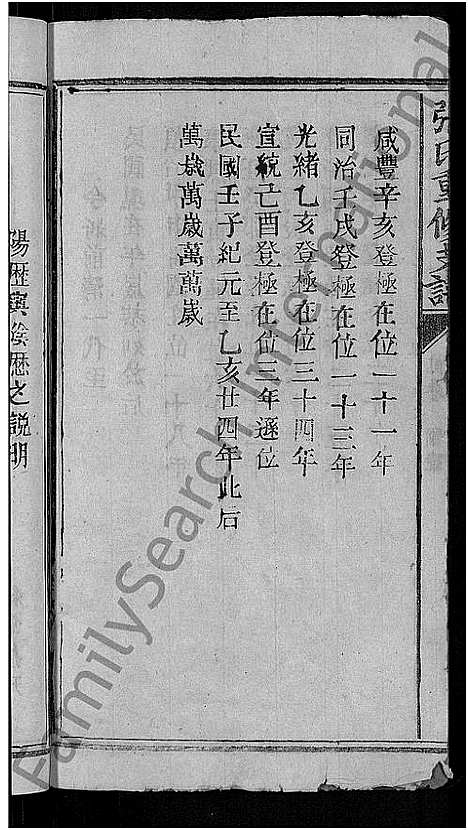 張氏重修支譜
咸豐辛亥登極在位一十一年
同治壬戌登極在位一十三年
光緒乙亥登極在位三十四年
宣統己酉登極在位三年遜位
民國壬子紀元至乙亥廿四年此后
萬歲萬歲萬萬歲
陽歷與陰歷之説明
FamilySearch International